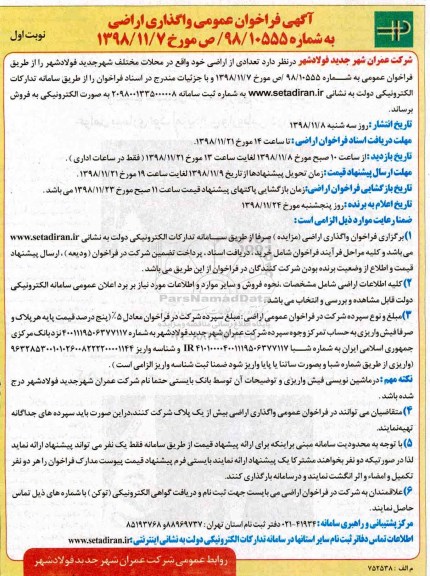 آگهی فراخوان عمومی واگذاری اراضی
به شماره ۹۸/۱۰۵۵۵/ص مورخ ۱۳۹۸/۱۱/۷
نوبت اول
شرکت عمران شهر جدید فولادشهر درنظر دارد تعدادی از اراضی خود واقع در محلات مختلف شهرجدید فولادشهر را از طریق
فراخوان عمومی به شماره ۹۸/۱۰۵۵۵ /ص مورخ ۱۳۹۸/۱۱/۷ و با جزئیات مندرج در اسناد فراخوان را از طریق سامانه تدارکات
الکترونیکی دولت به نشانی www.setadiran.ir به شماره ثبت سامانه ۲۰۹۸۰۰۱۳۳۵۰۰۰۰۰۸ به صورت الکترونیکی به فروش
برساند.
تاریخ انتشار: روز سه شنبه ۱۳۹۸/۱۱/۸
مهلت دریافت اسناد فراخوان اراضی: تا ساعت ۱۴ مورخ ۱۳۹۸/۱۱/۲۱.
تاریخ بازدید: از ساعت ۱۰ صبح مورخ ۱۳۹۸/۱۱/۸ لغایت ساعت ۱۳ مورخ ۱۳۹۸/۱۱/۲۱ (فقط در ساعات اداری).
مهلت ارسال پیشنهاد قیمت: زمان تحویل پیشنهادها از تاریخ ۱۱/۹ لغایت ساعت ۱۹ مورخ ۱۳۹۸/۱۱/۲۱.
تاریخ بازگشایی فراخوان اراضی: زمان بازگشایی پاکتهای پیشنهاد قیمت ساعت ۱۱ صبح مورخ ۱۳۹۸/۱۱/۲۳ می باشد.
تاریخ اعلام به برنده: روز پنجشنبه مورخ ۱۳۹۸/۱۱/۲۴
ضمنا رعایت موارد ذیل الزامی است:
۱) برگزاری فراخوان واگذاری اراضی (مزایده) صرفا از طریق سامانه تدارکات الکترونیکی دولت به نشانی www.setadiran.ir
می باشد و کلیه مراحل فرآیند فراخوان شامل خرید، دریافت اسناد، پرداخت تضمین شرکت در فراخوان (ودیعه)، ارسال پیشنهاد
قیمت و اطلاع از وضعیت برنده بودن شرکت کنندگان در فراخوان از این طریق می باشد.
ParsNamadData
۲) کلیه اطلاعات اراضی شامل مشخصات، نحوه فروش و سایر موارد و اطلاعات مورد نیاز بر برد اعلان عمومی سامانه الکترونیکی
دولت قابل مشاهده و بررسی و انتخاب می باشد.
۳) مبلغ و نوع سپرده شرکت در فراخوان عمومی اراضی: مبلغ سپرده شرکت در فراخوان معادل ۵٪ (پنج درصد) قیمت پایه هر پلاک و
صرفا فیش واریزی به حساب تمرکز وجوه سپرده شرکت عمران شهر جدید فولادشهر به شماره ۴۰۰۱۱۱۹۵۰۶۳۷۷۱۱۷ نزد بانک مرکزی
جمهوری اسلامی ایران به شماره شبا
(واریزی از طریق شماره شبا و بصورت ساتنا یا پایا واریز شود ضمنا ثبت شناسه واریز الزامی است).
نکته مهم: درماشین نویسی فیش واریزی و توضیحات آن توسط بانک بایستی حتما نام شرکت عمران شهر جدید فولادشهر درج
شده باشد.
۴) متقاضیان می توانند در فراخوان عمومی واگذاری اراضی بیش از یک پلاک شرکت کنند، دراین صورت باید سپرده های جداگانه
تهیه نمایند.
۵) با توجه به محدودیت سامانه مبنی براینکه برای ارائه پیشنهاد قیمت از طریق سامانه فقط یک نفر می تواند پیشنهاد ارائه نماید
لذا در صورتیکه دو نفر بخواهند مشترکا یک پیشنهاد ارائه نمایند بایستی فرم پیشنهاد قیمت پیوست مدارک فراخوان را هر دو نفر
تکمیل و امضاء و اثر انگشت نمایند و درسامانه بارگذاری کنند.
۶) علاقمندان به شرکت در فراخوان اراضی می بایست جهت ثبت نام و دریافت گواهی الکترونیکی (توکن) با شماره های ذیل تماس
حاصل نمایند.
مرکز پشتیبانی و راهبری سامانه: ۴۱۹۳۴-۰۲۱ دفتر ثبت نام استان تهران: ۸۸۹۶۹۷۳۷ و ۸۵۱۹۳۷۶۸
اطلاعات تماس دفاتر ثبت نام سایر استانها در سامانه تدارکات الکترونیکی دولت به نشانی اینترنتی: www.setadiran.ir
روابط عمومی شرکت عمران شهر جدید فولادشهر
م الف: ۷۵۲۵۳۸